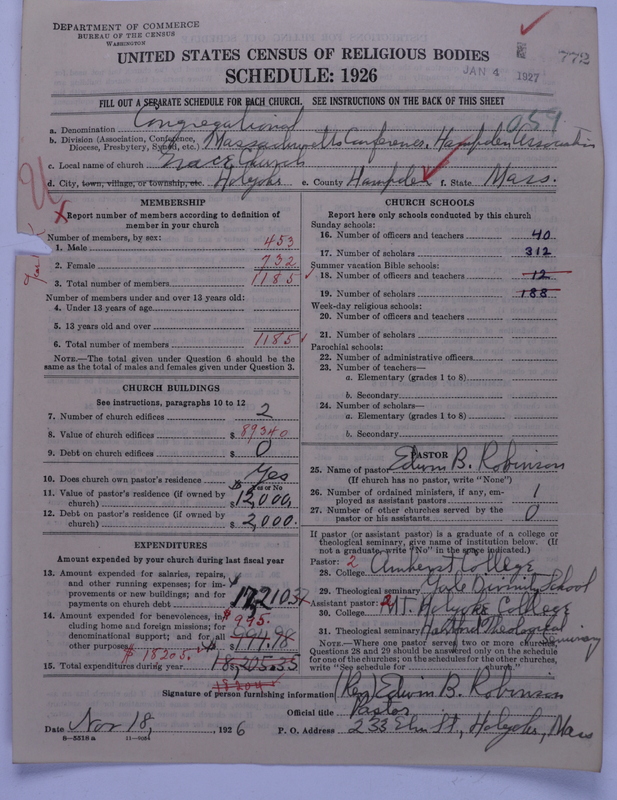 DEPARTMENT OF COMMERCE
BUREAU OF THE CENSUS
WASHINGTON
UNITED STATES CENSUS OF RELIGIOUS BODIES
SCHEDULE: 1926
JAN 4 1927
772
FILL OUT A SEPARATE SCHEDULE FOR EACH CHURCH. SEE INSTRUCTIONS ON THE BACK OF THIS SHEET
059
a. Denomination Congregational
b. Division (Association, Conference, Diocese, Presbytery, Synod, etc.) Massachusetts Conference, Hampden Association
c. Local name of church Grace Church
d. City, town, village, or township, etc. Holyoke e. County Hampden f. State Mass.
MEMBERSHIP
Report number of members according to definition of member in your church
Number of members, by sex:
1. Male 453
2. Female 732
3. Total number of members 1185
Number of members under and over 13 years old:
4. Under 13 years of age
5. 13 years old and over
6. Total number of members 1185
NOTE.—The total given under Question 6 should be the same as the total of males and females given under Question 3.
CHURCH BUILDINGS
See instructions, paragraphs 10 to 12
7. Number of church edifices 2
8. Value of church edifices $ 89340
9. Debt on church edifices $ 0
10. Does church own pastor's residence Yes
Yes or No
11. Value of pastor's residence (if owned by church) $ 12,000.
12. Debt on pastor's residence (if owned by church) $ 2,000.
EXPENDITURES
Amount expended by your church during last fiscal year
13. Amount expended for salaries, repairs, and other running expenses; for improvements or new buildings; and for payments on church debt
14. Amount expended for benevolences, including home and foreign missions; for denominational support; and for all other purposes 995.
994.98
$ 18205.
15. Total expenditures during year $ 18,205.35
18204
CHURCH SCHOOLS
Report here only schools conducted by this church
Sunday schools:
16. Number of officers and teachers 40
17. Number of scholars 312
Summer vacation Bible schools:
18. Number of officers and teachers 12
19. Number of scholars 188
Week-day religious schools:
20. Number of officers and teachers
21. Number of scholars
Parochial schools:
22. Number of administrative officers
23. Number of teachers—
a. Elementary (grades 1 to 8)
b. Secondary
24. Number of scholars—
a. Elementary (grades 1 to 8)
b. Secondary
PASTOR
25. Name of pastor Edwin B. Robinson
(If church has no pastor, write "None")
26. Number of ordained ministers, if any, employed as assistant pastors 1
27. Number of other churches served by the pastor or his assistants 0
If pastor (or assistant pastor) is a graduate of a college or theological seminary, give name of institution below. (If not a graduate, write "No" in the space indicated.)
Pastor: 2
28. College Amherst College
29. Theological seminary Yale Divinity School
Assistant pastor: 2
30. College Mt. Holyoke College
31. Theological seminary Hartford Theological Seminary
NOTE.—Where one pastor serves two or more churches, Questions 28 and 29 should be answered only on the schedule for one of the churches; on the schedules for the other churches, write "See schedule for church."
Signature of person furnishing information (Rev) Edwin B. Robinson
Official title Pastor
Date Nov 18, 1926 P. O. Address 233 Elm St., Holyoke, Mass
8—5518 a